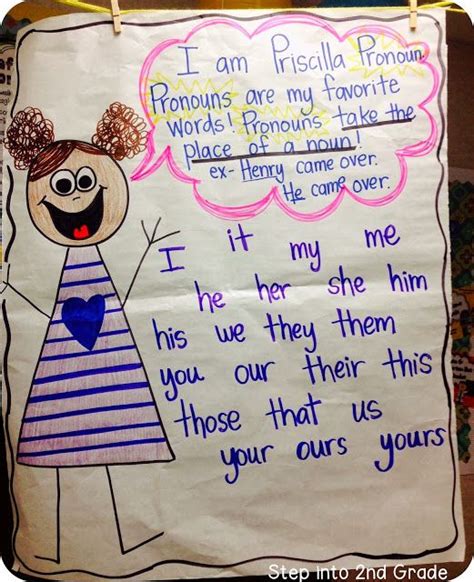 I am Priscilla Pronoun.
Pronouns are my favorite
words! Pronouns take the
place of a noun!
ex- Henry came over.
He came over.
I it my me
he her she him
his we they them
you our their this
those that us
your ours yours
Step into 2nd Grade